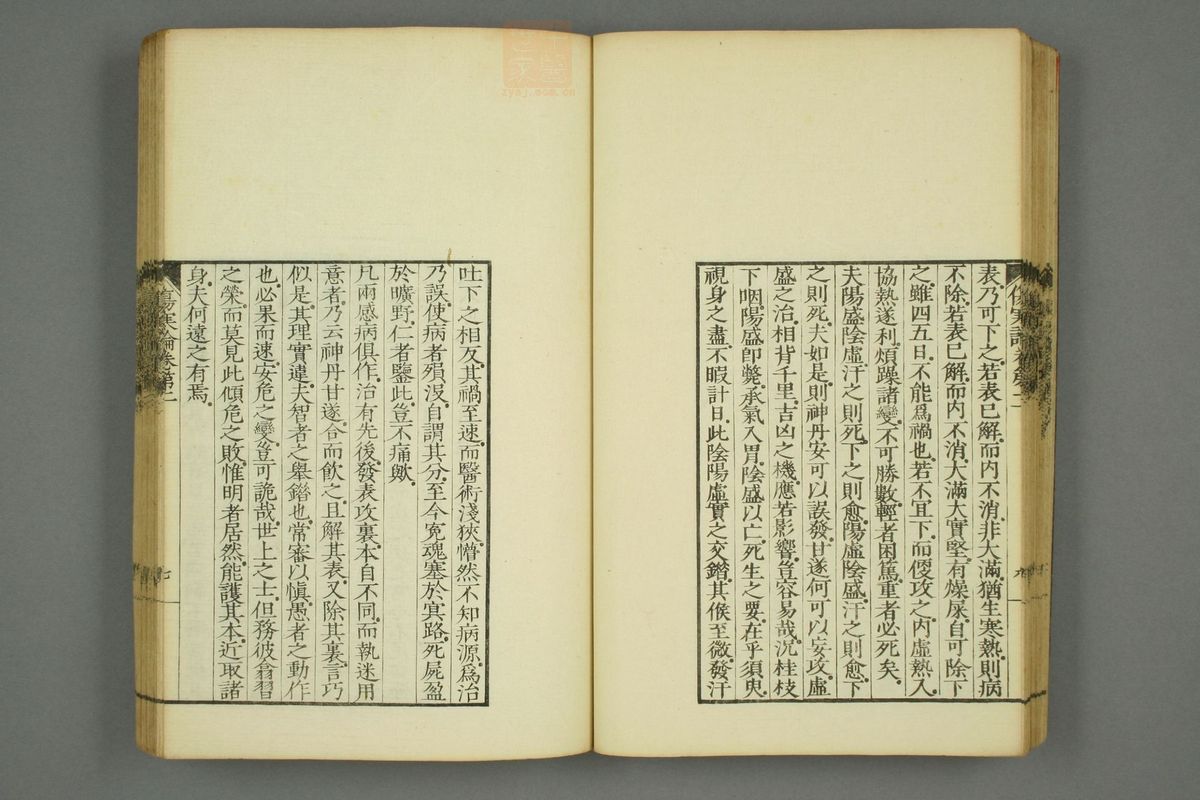 表乃可下之若表已解而内不消非大滿猶生寒熱則病
不除若表已解而内不消大滿大實堅有燥屎自可除下
之雖四五日不能爲禍也若不宜下而便攻之内虛熱入
協熱遂利煩躁諸變不可勝數輕者困篤重者必死矣
夫陽盛陰虛汗之則死下之則愈陽虛陰盛汗之則愈下
之則死夫如是則神丹安可以誤發甘遂何可以妄攻虛
盛之治相背千里吉凶之機應若影響豈容易哉況桂枝
下咽陽盛卽斃承氣入胃陰盛以亡死生之要在乎須臾
視身之盡不暇計日此陰陽虛實之交錯其候至微發汗
吐下之相反其禍至速而醫術淺狹懵然不知病源爲治
乃誤使病者殞沒自謂其分至今寃魂塞於冥路死屍盈
於曠野仁者鑒此豈不痛歟
凡兩感病俱作治有先後發表攻裏本自不同而執迷用
意者乃云神丹甘遂合而飲之且解其表又除其裏言巧
似是其理實違夫智者之舉錯也常審以愼愚者之動作
也必果而速安危之變豈可詭哉世上之士但務彼翕習
之榮而莫見此傾危之敗惟明者居然能護其本近取諸
身夫何遠之有焉
傷寒論卷第二
七
zysj.com.cn